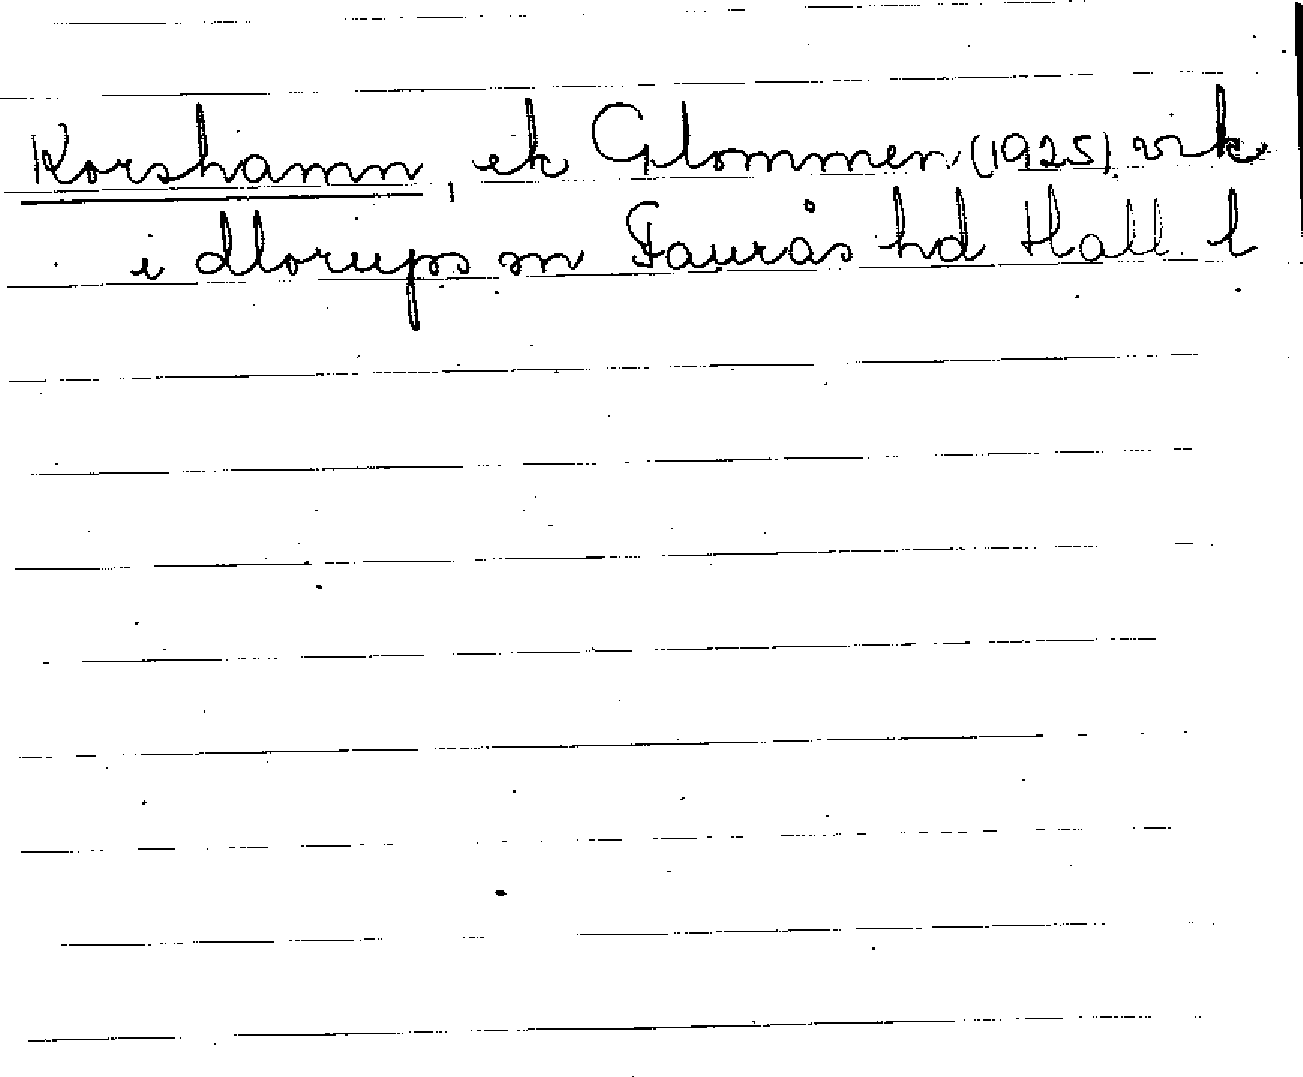 Korshamn, ek Glommen (1925) vik
i Morups sn Faurås hd Hall. l